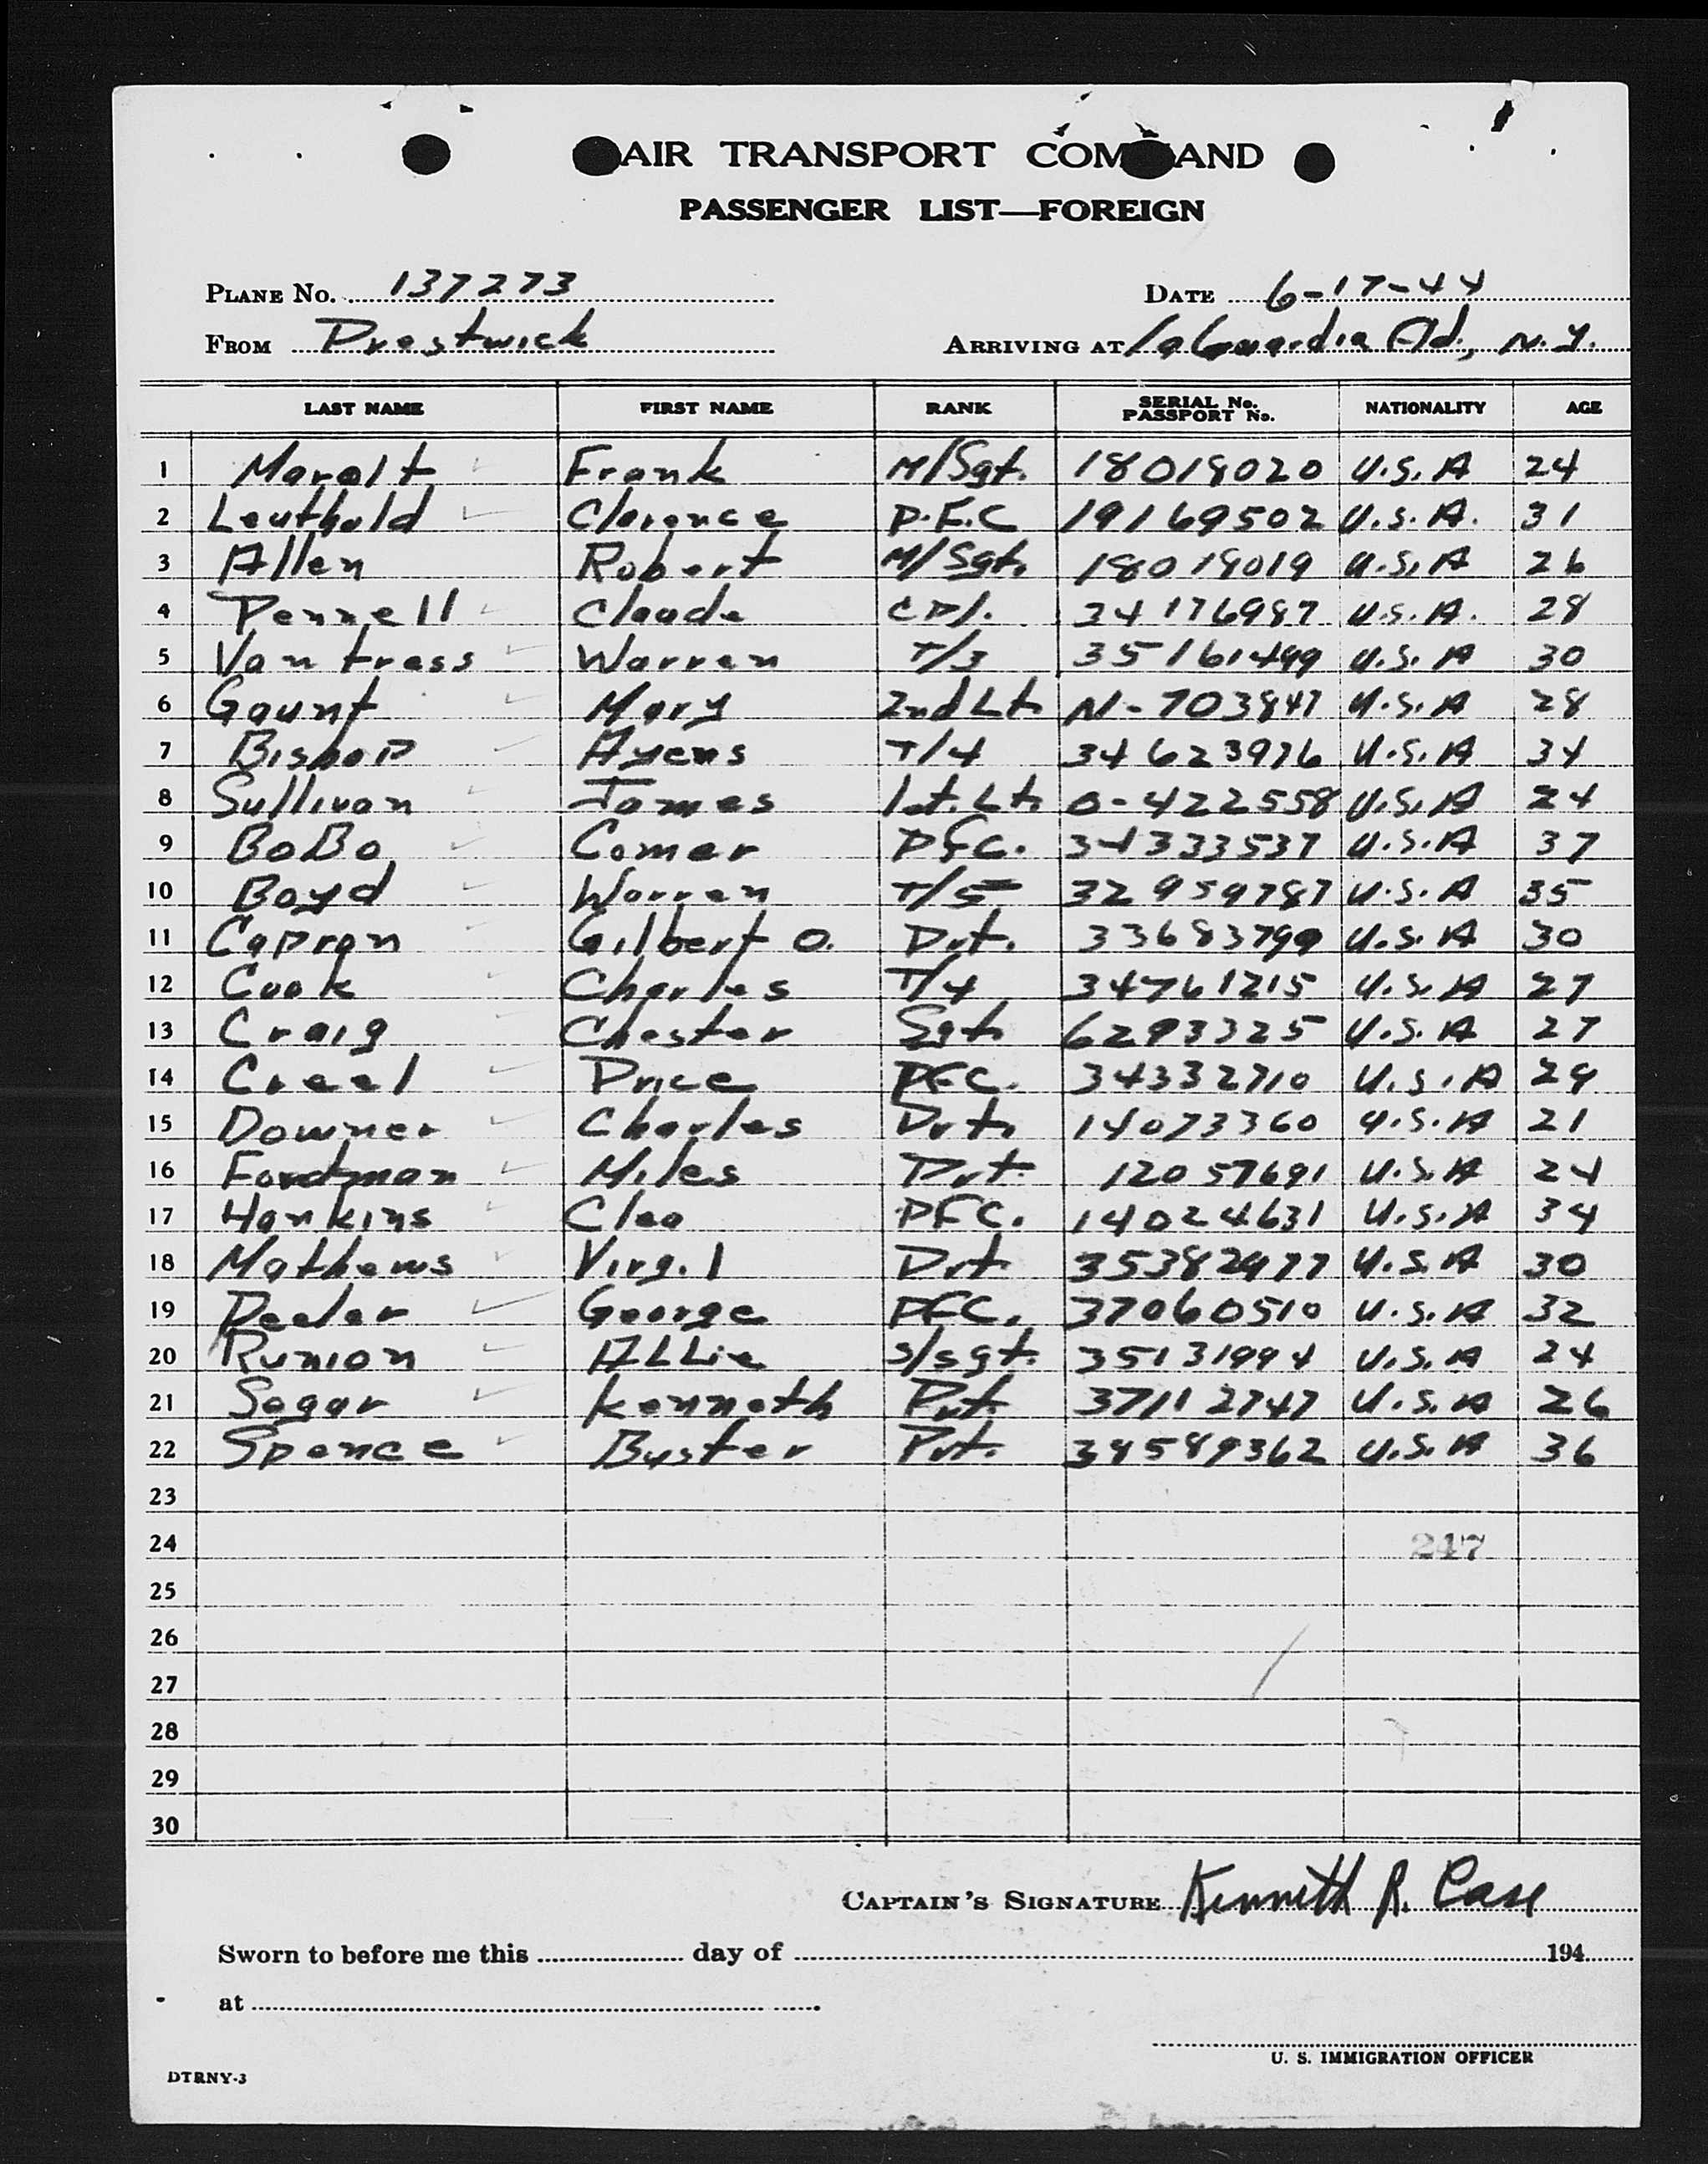 AIR TRANSPORT COMMAND
PASSENGER LIST—FOREIGN
PLANE No. 137273 DATE 6-17-44
FROM Prestwick ARRIVING AT LaGuardia Fld., N.Y.
LAST NAME FIRST NAME RANK SERIAL No. PASSPORT No. NATIONALITY AGE
1 Marolt Frank M/Sgt. 18018020 U.S.A 24
2 Leuthold Clarence P.F.C 19169502 U.S.A. 31
3 Allen Robert M/Sgt. 18018019 U.S.A 26
4 Pennell Claude Cpl. 34176987 U.S.A. 28
5 Van tress Warren T/3 35161499 U.S.A 30
6 Gaunt Mary 2nd Lt. N-703847 U.S.A 28
7 Bishop Ayens T/4 34623976 U.S.A 34
8 Sullivan James 1st. Lt. O-422558 U.S.A 24
9 BoBo Comer PFC. 34333537 U.S.A 37
10 Boyd Warren T/5 32959787 U.S.A 35
11 Capron Gilbert O. Pvt. 33683799 U.S.A 30
12 Cook Charles T/4 34761215 U.S.A 27
13 Craig Chester Sgt. 6293325 U.S.A 27
14 Creel Price PFC. 34332710 U.S.A 29
15 Downer Charles Pvt. 14073360 U.S.A 21
16 Fordman Miles Pvt. 12057691 U.S.A 24
17 Hankins Cleo PFC. 14024631 U.S.A 34
18 Mathews Virgil Pvt 35382977 U.S.A 30
19 Peeler George PFC. 37060510 U.S.A 32
20 Runion ALLie S/Sgt. 35131994 U.S.A 24
21 Sagar Kenneth Pvt. 37112747 U.S.A 26
22 Spence Buster Pvt. 34589362 U.S.A 36
23
24 247
25
26
27
28
29
30
CAPTAIN'S SIGNATURE Kenneth R. Case
Sworn to before me this day of 194
at
U. S. IMMIGRATION OFFICER
DTRNY-3